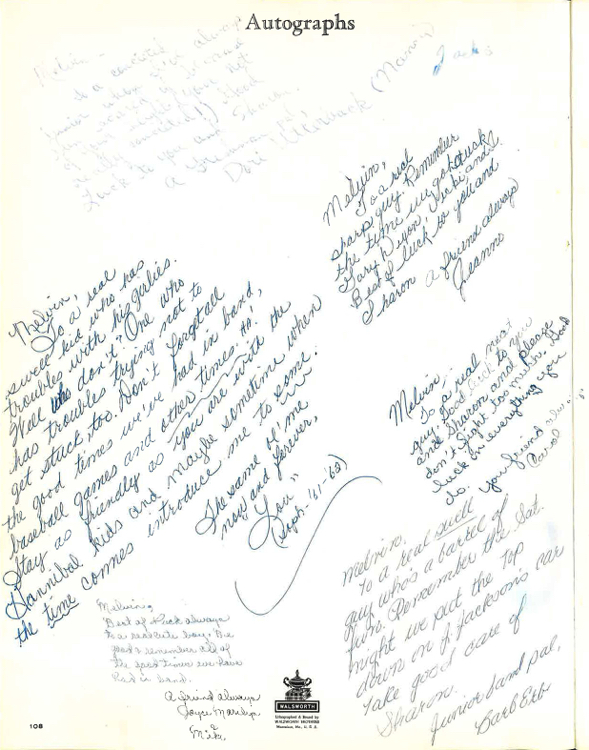 Autographs
Melvin-
To a conceited
junior whom I've always
of your neighbors
really conceited!) Good
Luck to you and Sharon.
A freshman pal,
Dori Utterback
Jacks
Melvin,
To a real
sharp guy. Remember
the time we got stuck
Gary Dixon, Vicki and I.
Best of luck to you and
Sharon a friend always
Jeanne
Melvin,
To a real
swell kid who has
troubles with his girlies.
Well who don't? One who
has troubles trying not to
get stuck, too. Don't forget all
the good times we've had in band,
baseball games and other times. HA!
Stay as friendly as you are with the
Hannibal kids and maybe sometime when
the time comes introduce me to some.
The same ol' me
now and forever,
"Lou"
(Soph. '61-'62)
Melvin-
To a real neat
guy. Good luck to you
and Sharon and please
don't fight too much. Good
luck in everything you
do.
your friend
Carol
Melvin,
To a real swell
guy who's a barrel of
fun. Remember the Sat.
night we put the top
down on J. Jackson's car
Take good care of
Sharon.
Junior band pal,
Barb
Melvin,
Best of luck always
to a real cute boy. Be
good & remember all of
the good times we have
had in band.
A friend always
Joyce
Mike
WALSWORTH
Lithographed & Bound by
WALSWORTH BROTHERS
Marceline, Mo., U. S. A.
108